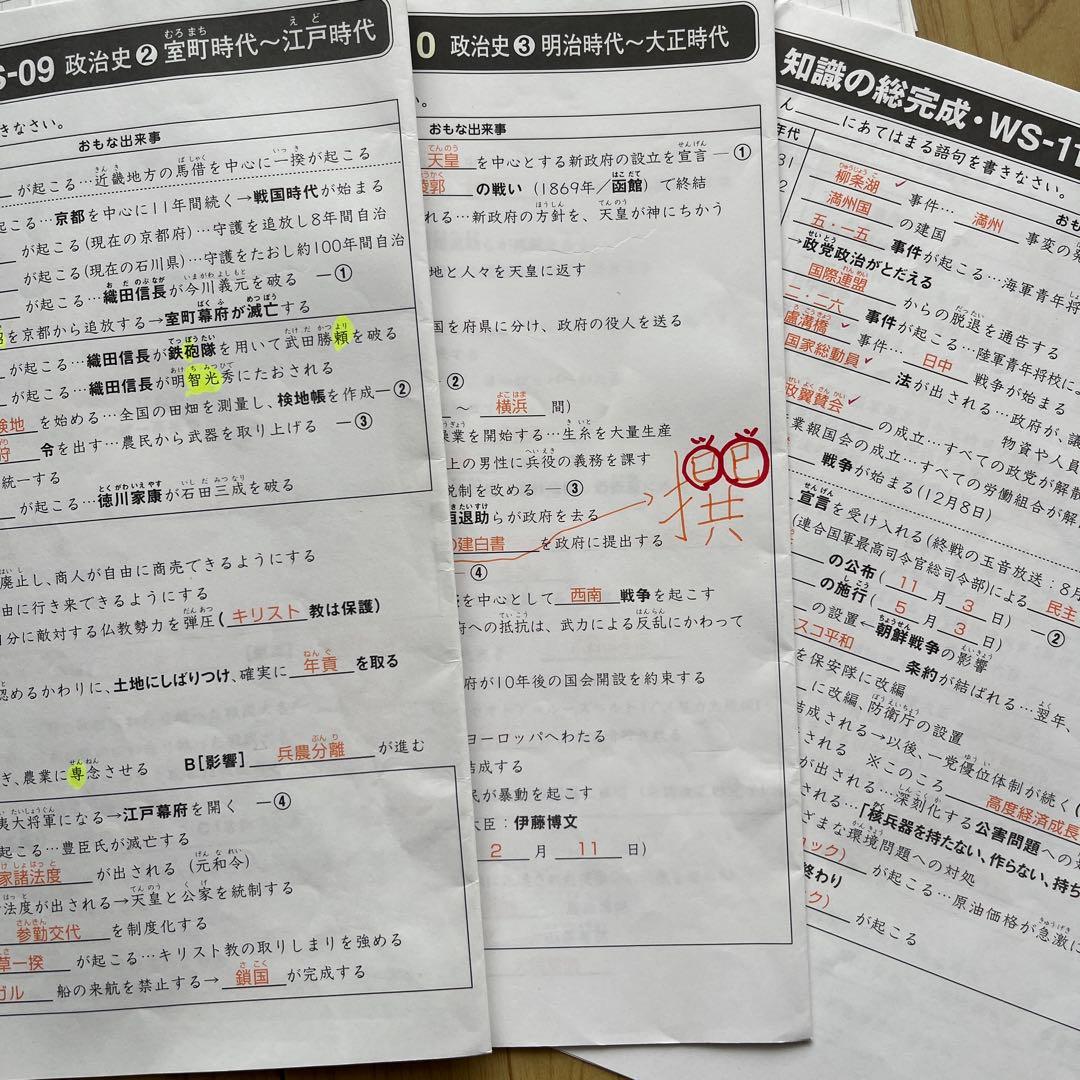 S-09 政治史❷室町時代～江戸時代
きなさい。
おもな出来事
が起こる…近畿地方の馬借を中心に一揆が起こる
起こる…京都を中心に11年間続く→戦国時代が始まる
が起こる(現在の京都府)…守護を追放し8年間自治
が起こる(現在の石川県)…守護をたおし約100年間自治
が起こる…織田信長が今川義元を破る ―①
を京都から追放する→室町幕府が滅亡する
が起こる…織田信長が鉄砲隊を用いて武田勝頼を破る
が起こる…織田信長が明智光秀にたおされる
検地 を始める…全国の田畑を測量し、検地帳を作成―②
狩 令を出す…農民から武器を取り上げる ―③
統一する
徳川家康が石田三成を破る
廃止し、商人が自由に商売できるようにする
由に行き来できるようにする
自分に敵対する仏教勢力を弾圧(キリスト教は保護)
認めるかわりに、土地にしばりつけ、確実に 年貢 を取る
ぎ、農業に専念させる B[影響] 兵農分離 が進む
夷大将軍になる→江戸幕府を開く ―④
起こる…豊臣氏が滅亡する
家諸法度 が出される (元和令)
法度が出される→天皇と公家を統制する
参勤交代 を制度化する
草一揆 が起こる…キリスト教の取りしまりを強める
ガル 船の来航を禁止する→ 鎖国 が完成する
0 政治史❸明治時代～大正時代
い。
おもな出来事
天皇 を中心とする新政府の設立を宣言―①
稜郭 の戦い (1869年/函館) で終結
れる…新政府の方針を、天皇が神にちかう
地と人々を天皇に返す
国を府県に分け、政府の役人を送る
②
～ 横浜 間)
操業を開始する…生糸を大量生産
上の男性に兵役の義務を課す
税制を改める ―③
垣退助らが政府を去る
の建白書 を政府に提出する
④
を中心として 西南 戦争を起こす
府への抵抗は、武力による反乱にかわって
府が10年後の国会開設を約束する
ヨーロッパへわたる
結成する
民が暴動を起こす
大臣：伊藤博文
2 月 11 日)
撰
知識の総完成・WS-11
にあてはまる語句を書きなさい。
年代
おも
31
柳条湖 事件… 満州 事変の発
2
満州国 の建国
五・一五 事件が起こる…海軍青年将
→政党政治がとだえる
国際連盟 からの脱退を通告する
二・二六 事件が起こる…陸軍青年将校によ
盧溝橋 事件が起こる… 日中 戦争が始まる
国家総動員 法が出される…政府が、議
物資や人員
政翼賛会 の成立…すべての政党が解散
業報国会の成立…すべての労働組合が解
戦争が始まる(12月8日)
宣言を受け入れる(終戦の玉音放送：8月
(連合国軍最高司令官総司令部)による 民主
の公布( 11 月 3 日)
の施行( 5 月 3 日) ―②
の設置←朝鮮戦争の影響
スコ平和 条約が結ばれる…翌年、
を保安隊に改編
に改編、防衛庁の設置
結成される→以後、一党優位体制が続く(
される ※このころ 高度経済成長
が出される…深刻化する公害問題への対
される…「核兵器を持たない、作らない、持ち
ざまな環境問題への対処
ョック) が起こる…原油価格が急激に
終わり
ク) が起こる